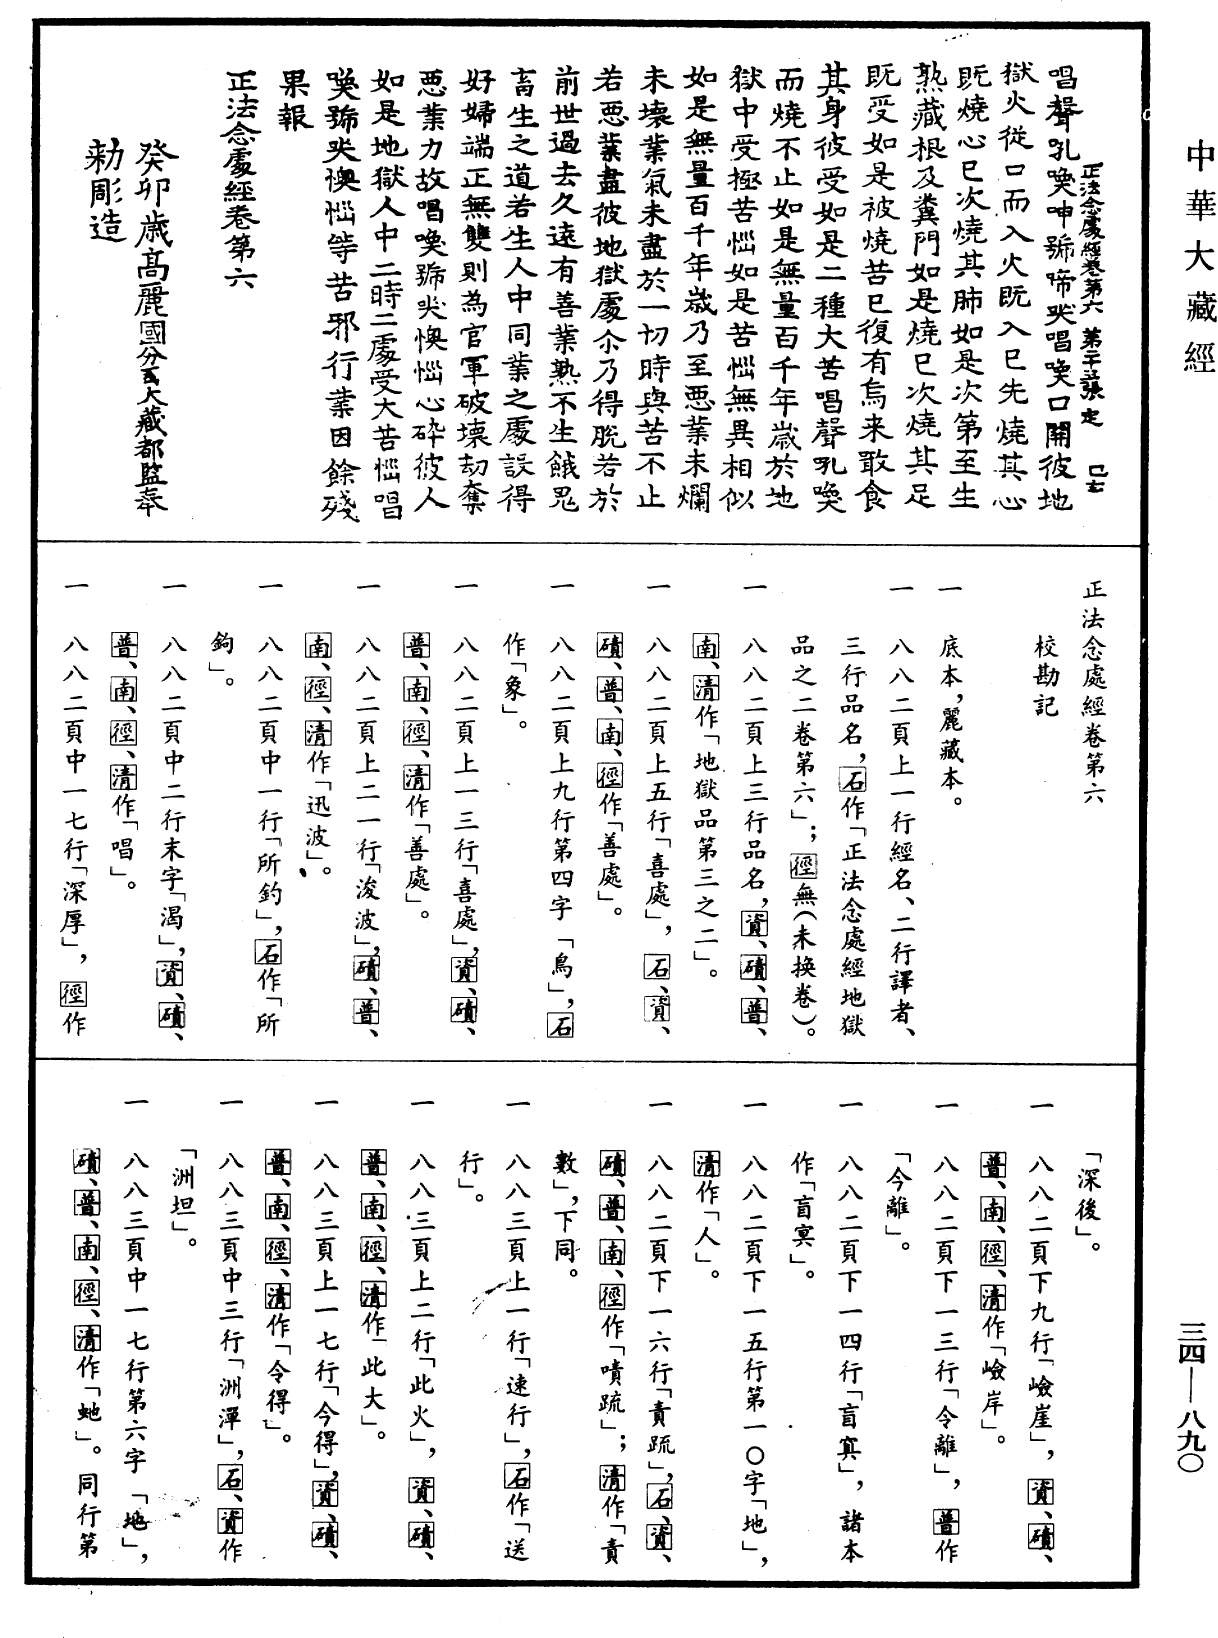 中華大藏經
正法念處經卷第六 第二十張 定
唱聲吼喚呻號啼哭唱喚口開彼地
獄火從口而入火既入已先燒其心
既燒心已次燒其肺如是次第至生
熟藏根及糞門如是燒已次燒其足
既受如是被燒苦已復有烏来敢食
其身彼受如是二種大苦唱聲吼喚
而燒不止如是無量百千年歲於地
獄中受極苦惱如是苦惱無異相似
如是無量百千年歲乃至惡業未爛
未壞業氣未盡於一切時與苦不止
若惡業盡彼地獄處尒乃得脫若於
前世過去久遠有善業熟不生餓鬼
畜生之道若生人中同業之處設得
好婦端正無雙則為官軍破壞劫奪
惡業力故唱喚號哭懊惱心碎彼人
如是地獄人中二時二處受大苦惱唱
喚號哭懊惱等苦邪行業因餘殘
果報
正法念處經卷第六
癸卯歲高麗國分司大藏都監奉
勅彫造
正法念處經卷第六
校勘記
一 底本，麗藏本。
一 八八二頁上一行經名、二行譯者、
三行品名，石作「正法念處經地獄
品之二卷第六」；徑無（未换卷）。
一 八八二頁上三行品名，資、磧、普、
南、清作「地獄品第三之二」。
一 八八二頁上五行「喜處」，石、資、
磧、普、南、徑作「善處」。
一 八八二頁上九行第四字「鳥」，石
作「象」。
一 八八二頁上一三行「喜處」，資、磧、
普、南、徑、清作「善處」。
一 八八二頁上二一行「浚波」，磧、普、
南、徑、清作「迅波」。
一 八八二頁中一行「所釣」，石作「所
鉤」。
一 八八二頁中二行末字「渴」，資、磧、
普、南、徑、清作「唱」。
一 八八二頁中一七行「深厚」，徑作
「深後」。
一 八八二頁下九行「嶮崖」，資、磧、
普、南、徑、清作「嶮岸」。
一 八八二頁下一三行「令離」，普作
「今離」。
一 八八二頁下一四行「盲寘」，諸本
作「盲冥」。
一 八八二頁下一五行第一〇字「地」，
清作「人」。
一 八八二頁下一六行「責疏」，石、資、
磧、普、南、徑作「嘖疏」；清作「責
數」，下同。
一 八八三頁上一行「速行」，石作「送
行」。
一 八八三頁上二行「此火」，資、磧、
普、南、徑、清作「此大」。
一 八八三頁上一七行「今得」，資、磧、
普、南、徑、清作「令得」。
一 八八三頁中三行「洲潬」，石、資作
「洲坦」。
一 八八三頁中一七行第六字「地」，
磧、普、南、徑、清作「虵」。同行第
三四—八九〇